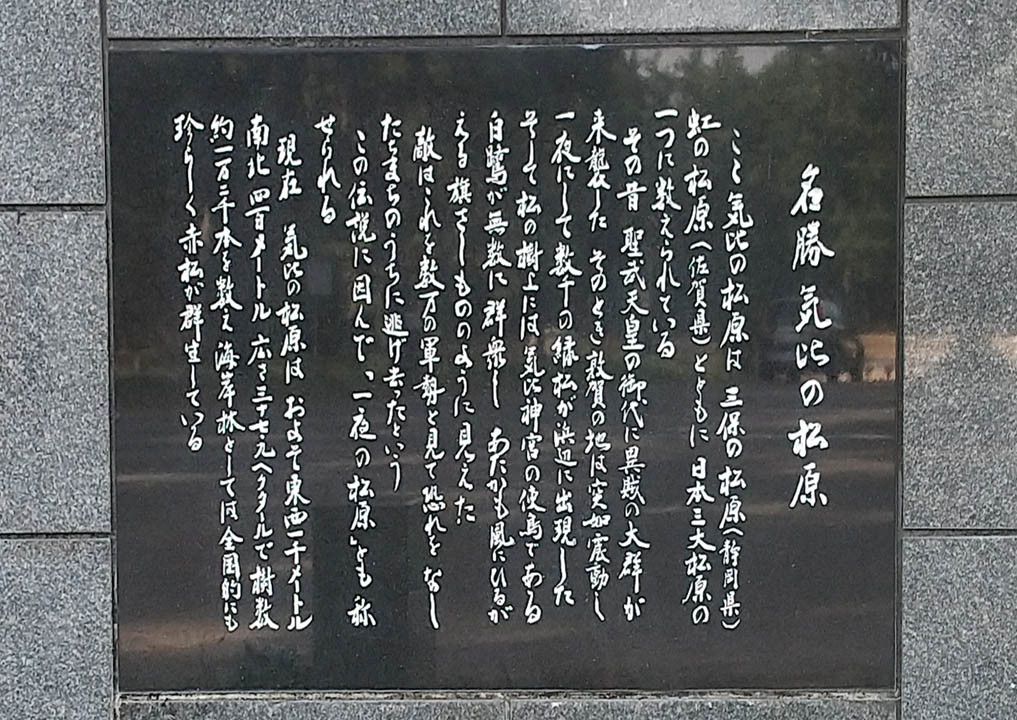 名勝 気比の松原
ここ気比の松原は 三保の松原(静岡県)
虹の松原(佐賀県)とともに 日本三大松原の
一つに数えられている
その昔 聖武天皇の御代に異賊の大群が
来襲した そのとき敦賀の地は突如震動し
一夜にして数千の緑松が浜辺に出現した
そして松の樹上には 気比神宮の使鳥である
白鷺が無数に群衆し あたかも風にひるが
える旗さしもののように見えた
敵はこれを数万の軍勢と見て恐れをなし
たちまちのうちに逃げ去ったという
この伝説に因んで「一夜の松原」とも称
せられる
現在 気比の松原は およそ東西一千メートル
南北 四百メートル 広さ三十七元ヘクタールで樹数
約一万二千本を数え 海岸林としては全国的にも
珍らしく赤松が群生している